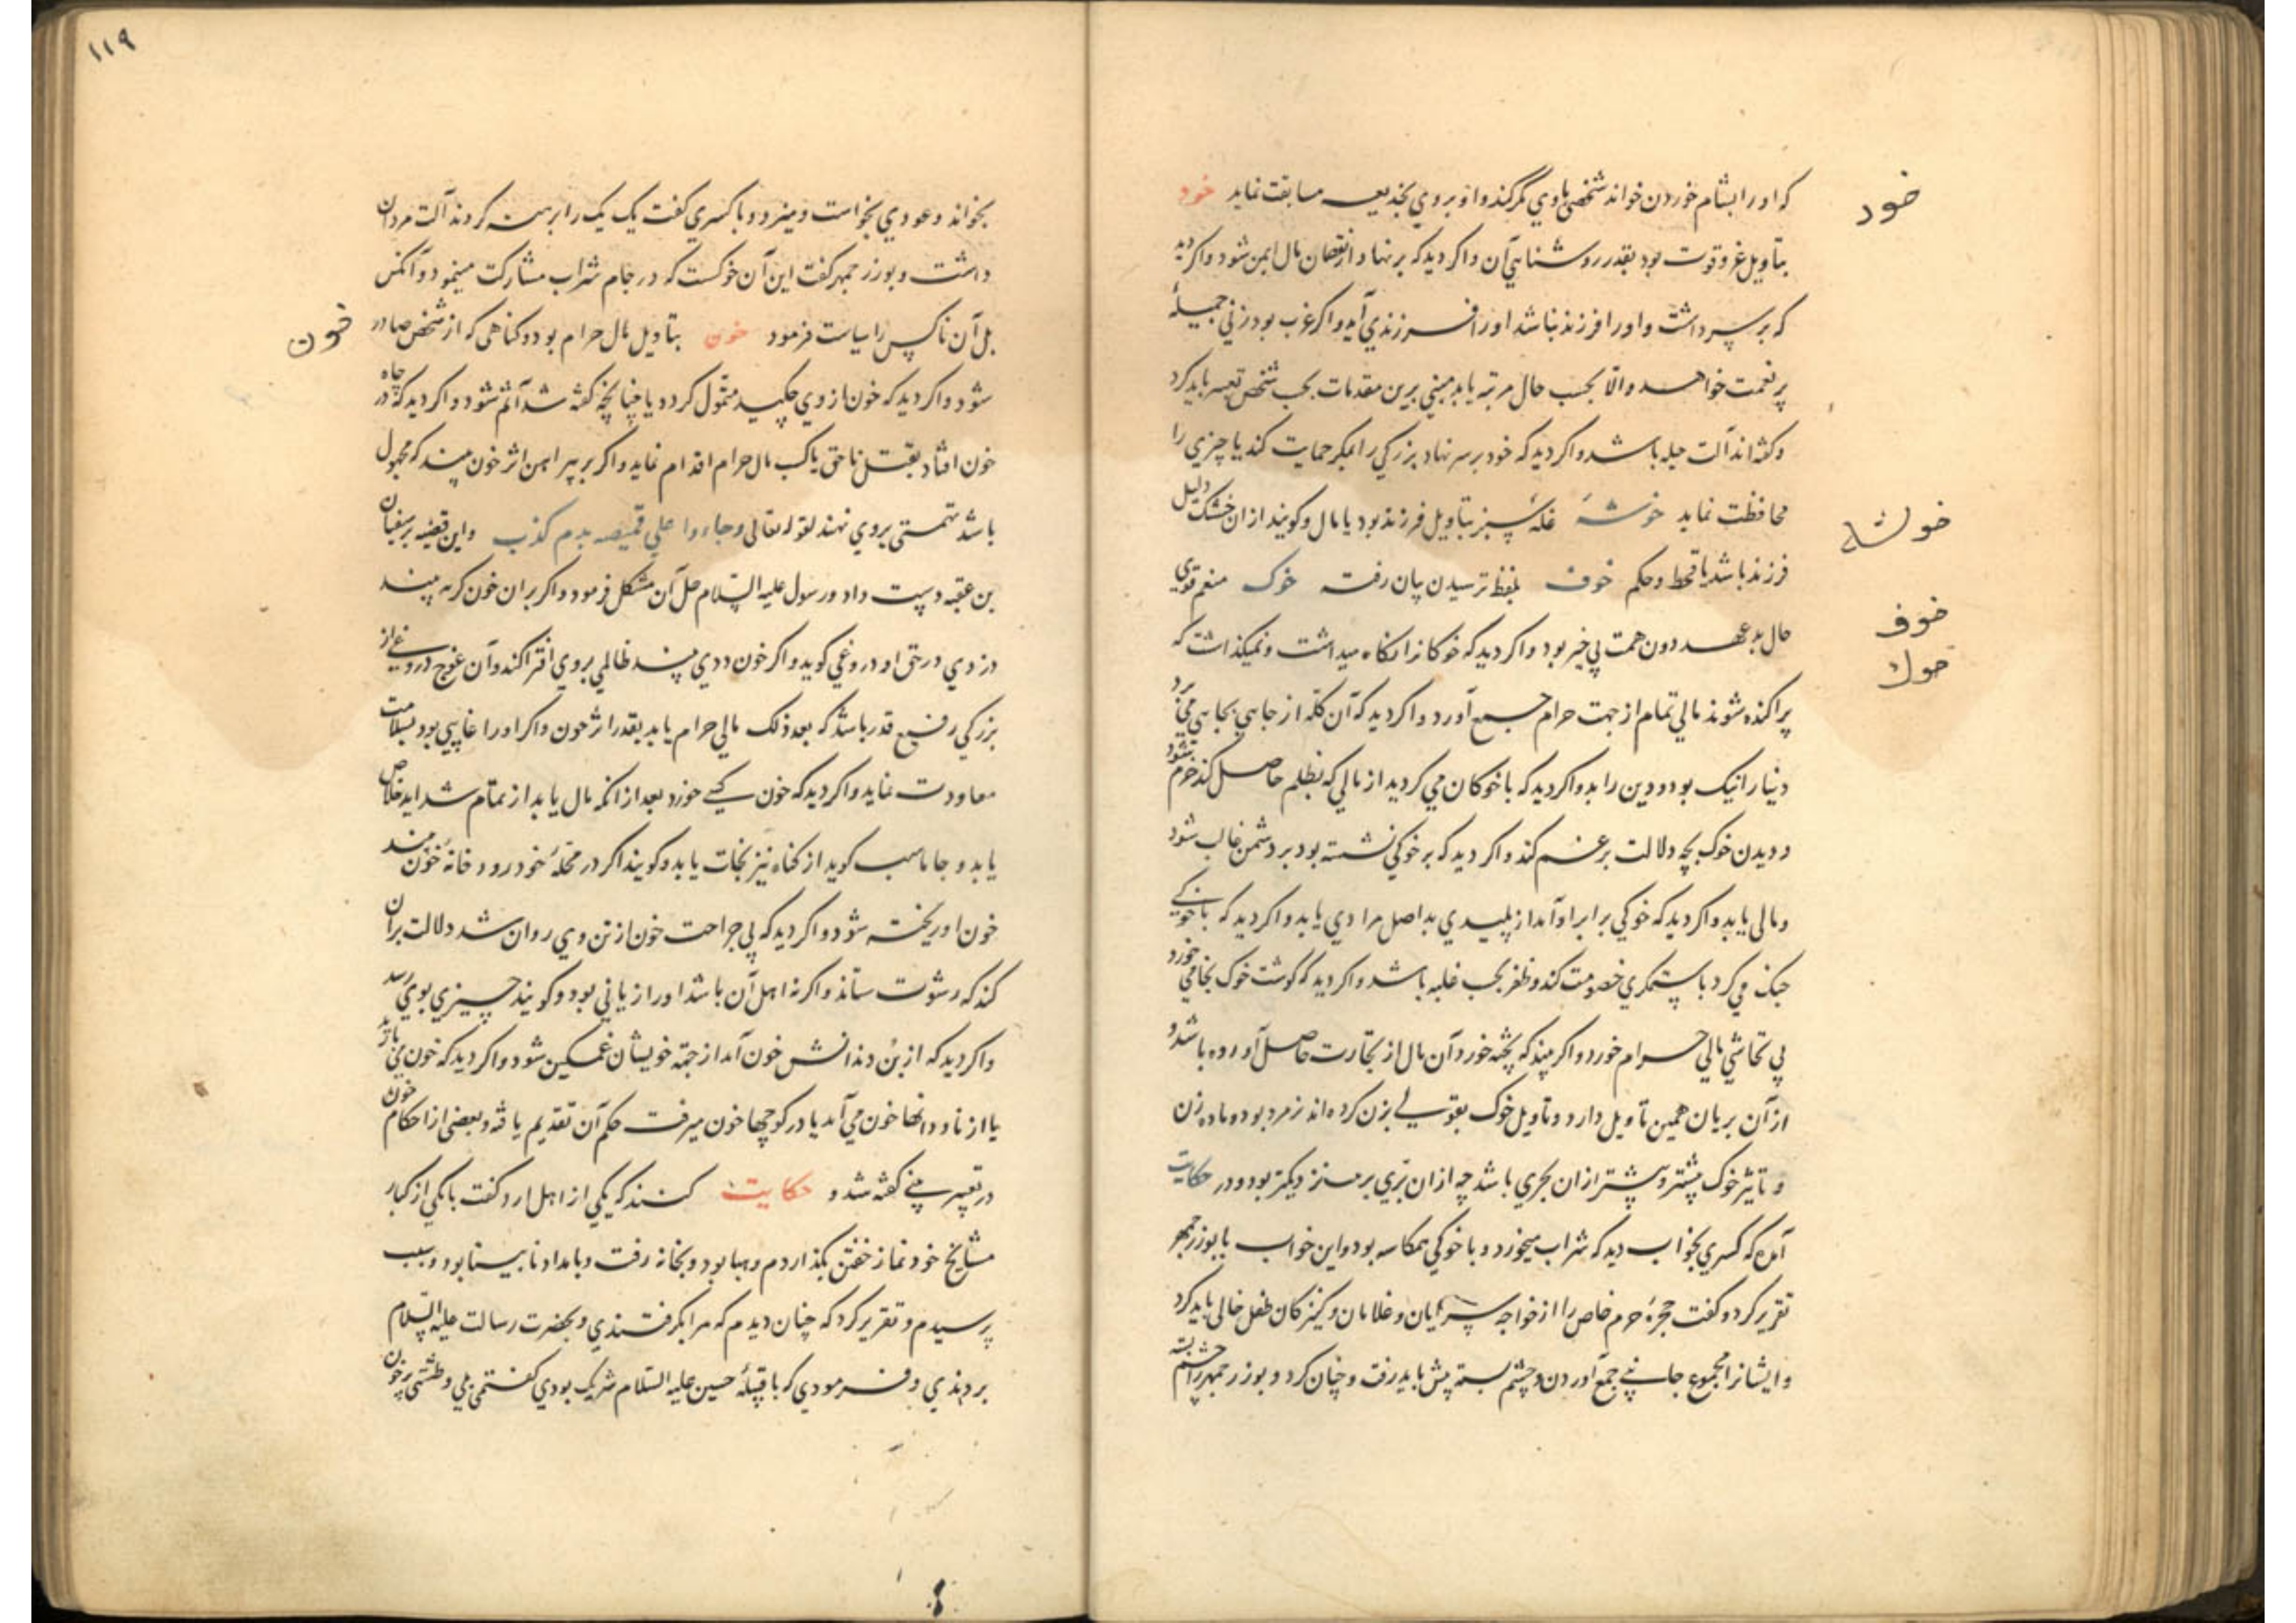 خود
که او را بشام خوردن خواند شخصی با وی مکر کند و او بر وی بخدیعه مسابقت نماید خود
بتاویل عز و قوت بود بقدر روشنایی آن و اکر دید که بر نهاد از نقصان مال ایمن شود و اکر دید
که بر سر داشت و او را فرزند نباشد او را فرزندی آید و اکر عزب بود زنی جمیله
پر نعمت خواهد والّا بحسب حال مرتبه یابد مبنی برین مقدمات بحسب شخص تعبیر باید کرد
و کفته‌اند آلت حیله باشد و اکر دید که خود بر سر نهاد بزرکی را بمکر حمایت کند یا چیزی را
خوشه
محافظت نماید خوشه غلهٔ سبز بتاویل فرزند بود یا مال و کویند از ان خشک دلیل
خوف
فرزند باشد یا قحط و حکم خوف بلفظ ترسیدن بیان رفته خوک منعم قوی
خوك
حال بد عهد دون همت بی خیر بود و اکر دید که خوکانرا نکاه میداشت و نمیکذاشت که
پراکنده شوند مالی تمام از جهت حرام جمع آورد و اکر دید که آن کله از جایی بجایی می برد
دنیا را نیک بود و دین را بد و اکر دید که با خوکان می کردید از مالی که بظلم حاصل کند خرم شود
و دیدن خوک بچه دلالت بر غم کند و اکر دید که بر خوکی نشسته بود بر دشمن غالب شود
و مالی یابد و اکر دید که خوکی برابر او آمد از پلیدی بد اصل مرادی یابد و اکر دید که با خوکی
جنک می کرد با ستمکری خصومت کند و ظفر بحسب غلبه باشد و اکر دید که کوشت خوک بخامی خورد
بی تحاشی مالی حرام خورد و اکر بیند که پخته خورد آن مال از تجارت حاصل آورده باشد و
از آن بریان همین تاویل دارد و تاویل خوک بقولی بزن کرده‌اند نر مرد بود و ماده زن
و تاثیر خوک بیشتر از ان بحری باشد چه از ان برّی بر دیکر بود و در حکایت
آمده که کسری بخواب دید که شراب میخورد و با خوکی همکاسه بود و این خواب با بوزرجمهر
تقریر کرد و کفت حجرهٔ حرم خاص را از خواجه سرایان و غلامان و کنیزکان طفل خالی باید کرد
و ایشانرا مجموع جانبی جمع آوردن و چشم بسته پیش باید رفت و چنان کرد و بوزرجمهر را چشم بسته
۱۱۹
بخواند و عودی بخواست و میزد و با کسری کفت یک یک را برهنه کردند آلت مردان
داشت و بوزرجمهر کفت این آن خوکست که در جام شراب مشارکت مینمود و آنکس
خون
بل آن ناکس را سیاست فرمود خون بتاویل مال حرام بود و کناهی که از شخص صادر
شود و اکر دید که خون از وی چکید متموّل کردد یا چنانچه کفته شد آثم شود و اکر دید که در چاه
خون افتاد بقتل ناحق یا کسب مال حرام اقدام نماید و اکر بر پیراهن اثر خون بیند که مجهول
باشد تهمتی بر وی نهند لقوله تعالی وجاءوا علی قمیصه بدم کذب و این قضیه بر سفیان
بن عقبه دست داد و رسول علیه السّلام حل آن مشکل فرمود و اکر بران خون کربه بیند
دزدی در حق او دروغی کوید و اکر خون ددی بیند ظالمی بر وی افترا کند و آن دروغی از
بزرکی رفیع قدر باشد که بعد ذلک مالی حرام یابد بقدر اثر خون و اکر او را غایبی بود بسلامت
معاودت نماید و اکر دید که خون کسی خورد بعد از انکه مال یابد از تمام شداید خلاص
یابد و جاماسب کوید از کناه نیز نجات یابد و کویند اکر در محلهٔ خود رودخانهٔ خون بیند
خون او ریخته شود و اکر دید که بی جراحت خون از تن وی روان شد دلالت بر ان
کند که رشوت ستاند و اکر نه اهل آن باشد او را زیانی بود و کویند چیزی بوی رسد
و اکر دید که از بُن دندانش خون آمد از جهة خویشان غمکین شود و اکر دید که خون می بارید
یا از ناودانها خون می آمد یا در کوچها خون میرفت حکم آن تقدیم یافته و بعضی از احکام خون
در تعبیر منی کفته شد و حکایت کنند که یکی از اهل ارد کفت با یکی از کبار
مشایخ خود نماز خفتن بکذاردم و بینا بود و بخانه رفت و بامداد نابینا بود و سبب
پرسیدم و تقریر کرد که چنان دیدم که مرا بکرفتندی و بحضرت رسالت علیه السّلام
بردندی و فرمودی که با قتلهٔ حسین علیه السلام شریک بودی کفتمی نی و طشتی پر خون